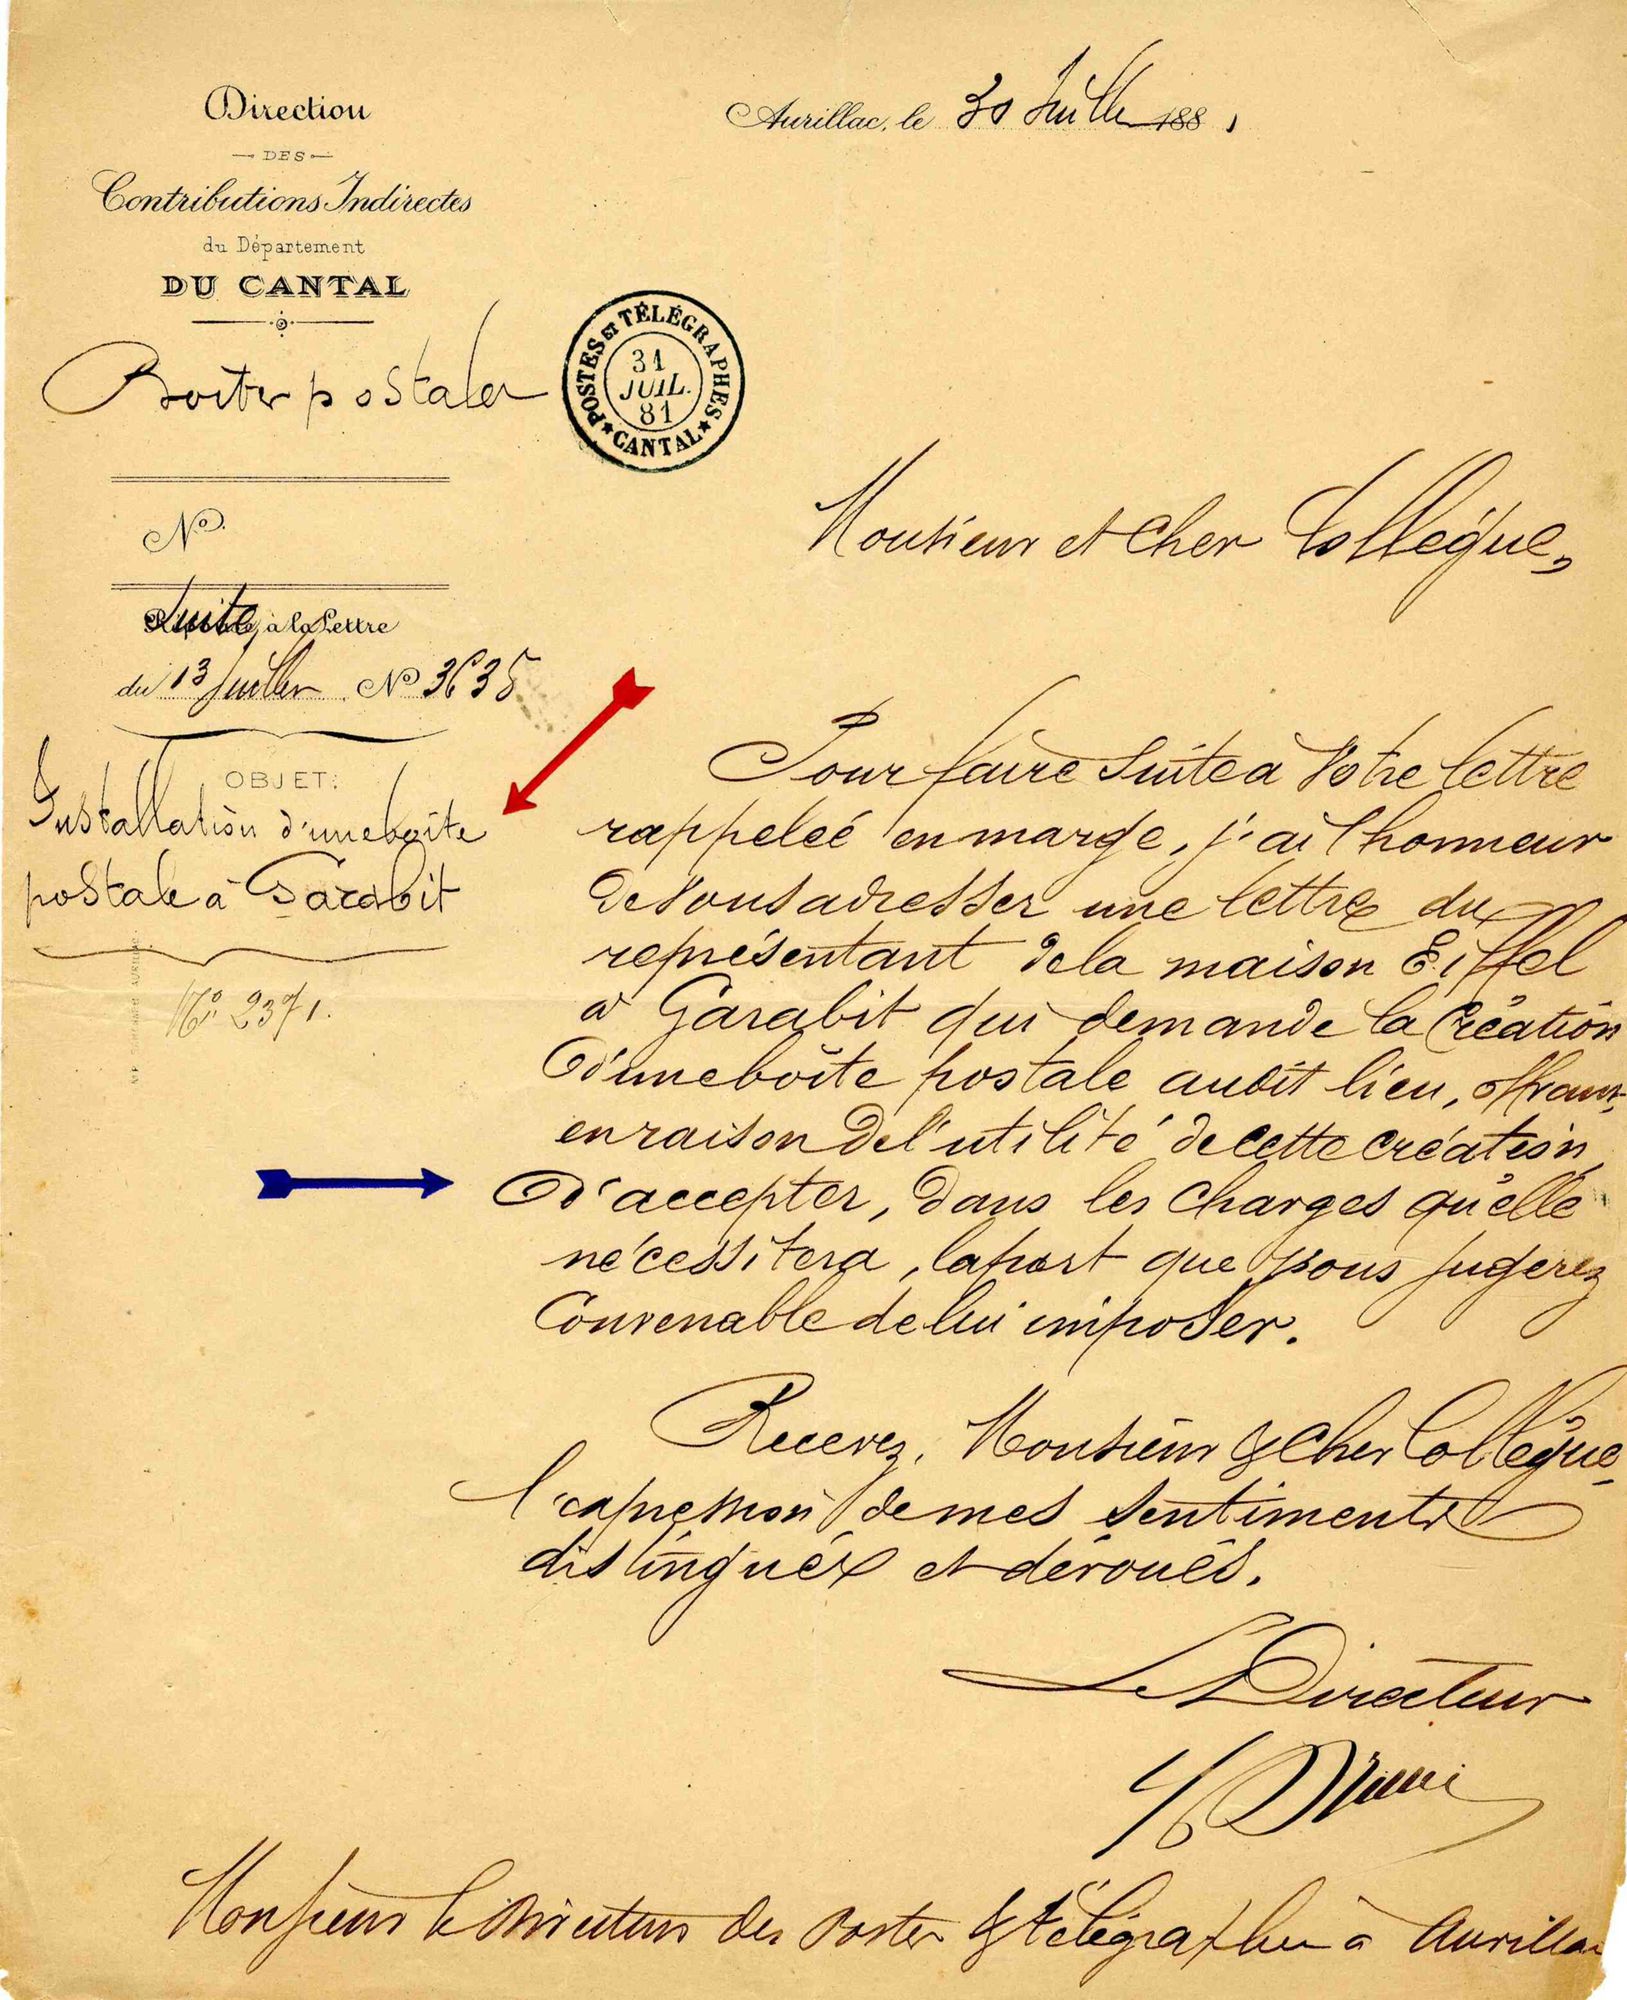 Direction
DES
Contributions Indirectes
du Département
DU CANTAL
Aurillac, le 30 Juillet 1881
Boites postales
POSTES ET TÉLÉGRAPHES
31
JUIL.
81
CANTAL
No.
Monsieur et Cher Collègue,
Suite, à la Lettre
du 13 Juillet No 3635
OBJET:
Installation d'une boîte
postale à Garabit
No. 2371.
Pour faire suite à Votre lettre
rappelée en marge, j'ai l'honneur
de Vous adresser une lettre du
représentant de la maison Eiffel
à Garabit qui demande la Création
d'une boîte postale audit lieu, offrant,
en raison de l'utilité de cette création,
d'accepter, dans les charges qu'elle
nécessitera, la part que vous jugerez
Convenable de lui imposer.
Recevez, Monsieur & Cher Collègue,
l'expression de mes sentiments
distingués et dévoués.
Le Directeur
Monsieur le Directeur des Postes & Télégraphes à Aurillac